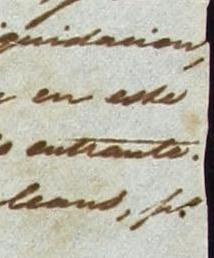 iquidacion,
en este
entrante.
leans, pª